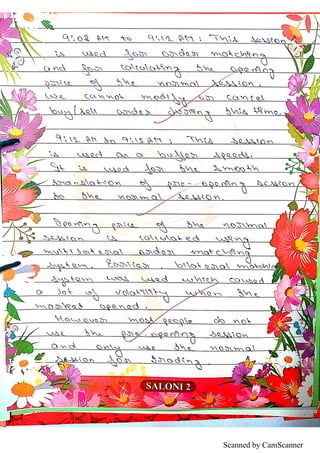 9:08 AM to 9:12 AM : This session
is used for order matching
and for calculating the opening
price of the normal session.
We cannot modify or cancel
buy/sell order during this time.
9:12 AM to 9:15 AM : This session
is used as a buffer speeds.
It is used for the smooth
translation of pre-opening session
to the normal session.
Opening price of the normal
session is calculated using
multilateral order matching
system. Earlier bilateral matching
system was used which caused
a lot of volatility when the
market opened.
However most people do not
use the pre opening session
and only use the normal
session for trading.
SALONI 2
Scanned by CamScanner